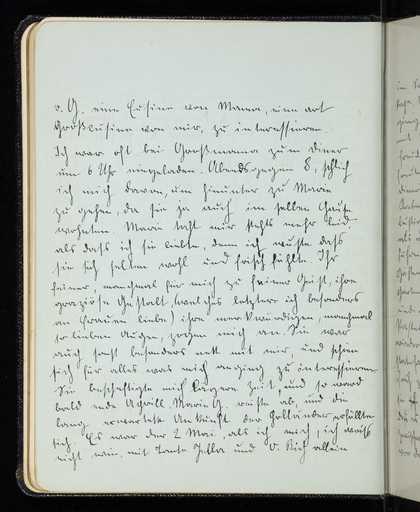 v. G. eine Cusine von Mama, eine art
Großcusine von mir, zu interessieren.
Ich war oft bei Großmama zum diner
um 6 Uhr eingeladen. Abends gegen 8, schlich
ich mich davon, um hinunter zu Marie
zu gehen, da sie ja auch im selben Hause
wohnten. Marie that mir stehts mehr leid
als daß ich sie liebte, denn ich wußte daß
sie sich selten wohl und frisch fühlte. Ihr
feiner, manchmal für mich zu feiner Geist, ihre
graziöse Gestalt (welches letztere ich besonders
an Frauen liebe) ihre merkwürdigen, manchmal
so lieben Augen, zogen mich an. Sie war
auch sonst besonders nett mit mir, und schien
sich für alles was mich anging zu interessieren.
Sie beschäftigte mich längere Zeit, und so ward
bald ende April. Marie G. reiste ab, und die
lang erwartete Ankunft der Holländer erfüllte
sich. Es war der 2 Mai, als ich mich, ich weiß
nicht wie, mit Tante Julla und O. Rich allein